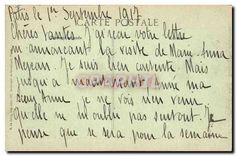 Paris le 1er Septembre 1917
CARTE POSTALE
Chères Tantes J'ai reçu votre lettre
m'annonçant la visite de Marie Anna
Je suis bien contente Mais
jusqu'à maintenant Anna ma
Anne je ne vois rien venir
qu'elle ne m'oublie pas surtout. Je
pense que se sera pour la semaine